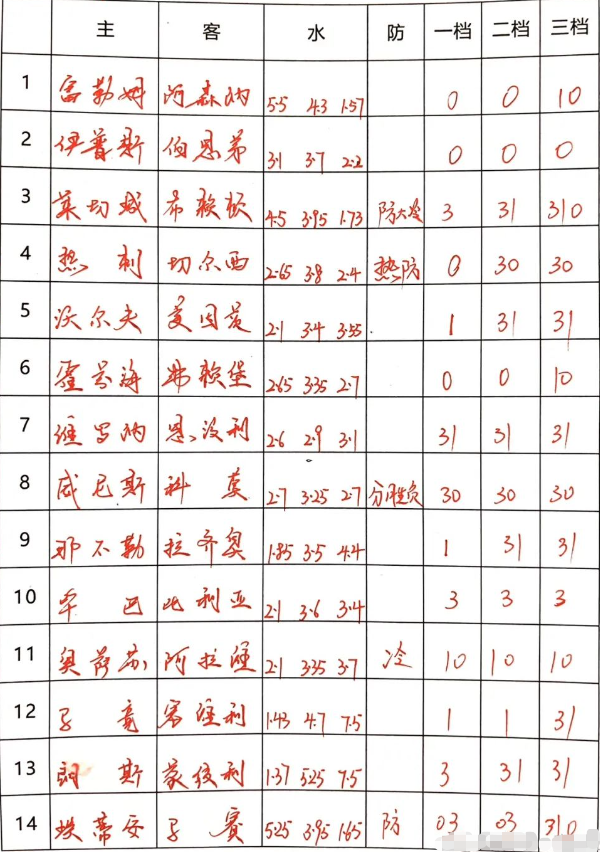 主 客 水 防 一档 二档 三档
1 富勒姆 阿森纳 5·5 4·3 1·57 0 0 10
2 伊普斯 伯恩茅 3·1 3·7 2·2 0 0 0
3 莱切城 布软顿 4·5 3·95 1·73 防大冷 3 31 310
4 热刺 切尔西 2·65 3·8 2·4 热防 0 30 30
5 沃尔夫 美因茨 2·1 3·4 3·55 1 31 31
6 霍芬海 弗软堡 2·65 3·35 2·7 0 0 10
7 维罗纳 恩波利 2·6 2·9 3·1 31 31 31
8 威尼斯 科莫 2·7 3·25 2·7 分胜负 30 30 30
9 那不勒 拉齐奥 1·85 3·5 4·4 1 31 31
10 毕巴 比利亚 2·1 3·6 3·4 3 3 3
11 奥萨苏 阿拉维 2·1 3·35 3·7 冷 10 10 10
12 马竞 塞维利 1·43 4·7 7·5 1 1 31
13 阿斯 蒙彼利 1·37 5·25 7·5 3 31 31
14 埃蒂安 马赛 5·25 3·95 1·65 防 03 03 310